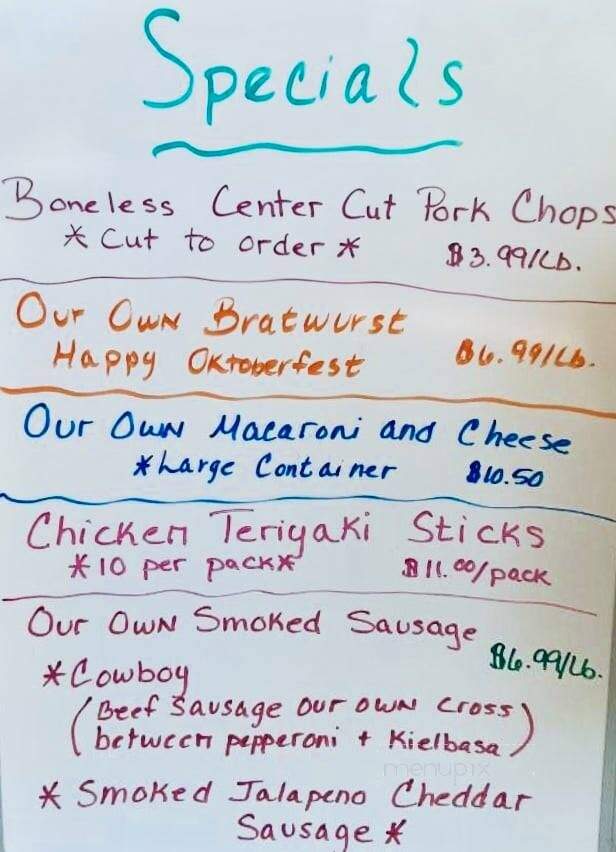 Specials
Boneless Center Cut Pork Chops
* Cut to order * $3.99/Lb.
Our Own Bratwurst
Happy Oktoberfest $6.99/Lb.
Our Own Macaroni and Cheese
*Large Container $10.50
Chicken Teriyaki Sticks
*10 per pack* $11.00/pack
Our Own Smoked Sausage
$6.99/Lb.
*Cowboy
(Beef Sausage our own cross
between pepperoni + Kielbasa)
menupix
* Smoked Jalapeno Cheddar
Sausage *